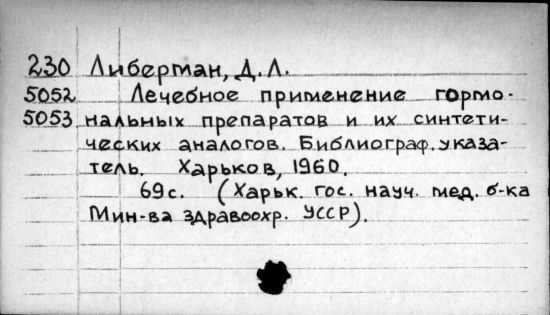 230 Либерман, Д.Л.
5052 Лечебное применение гормо-
5053 нальных препаратов и их синтети-
ческих аналогов. Библиограф. указа-
тель. Харьков, 1960.
69 с. (Харьк. гос. науч. мед. б-ка
Мин-ва здравоохр. УССР).